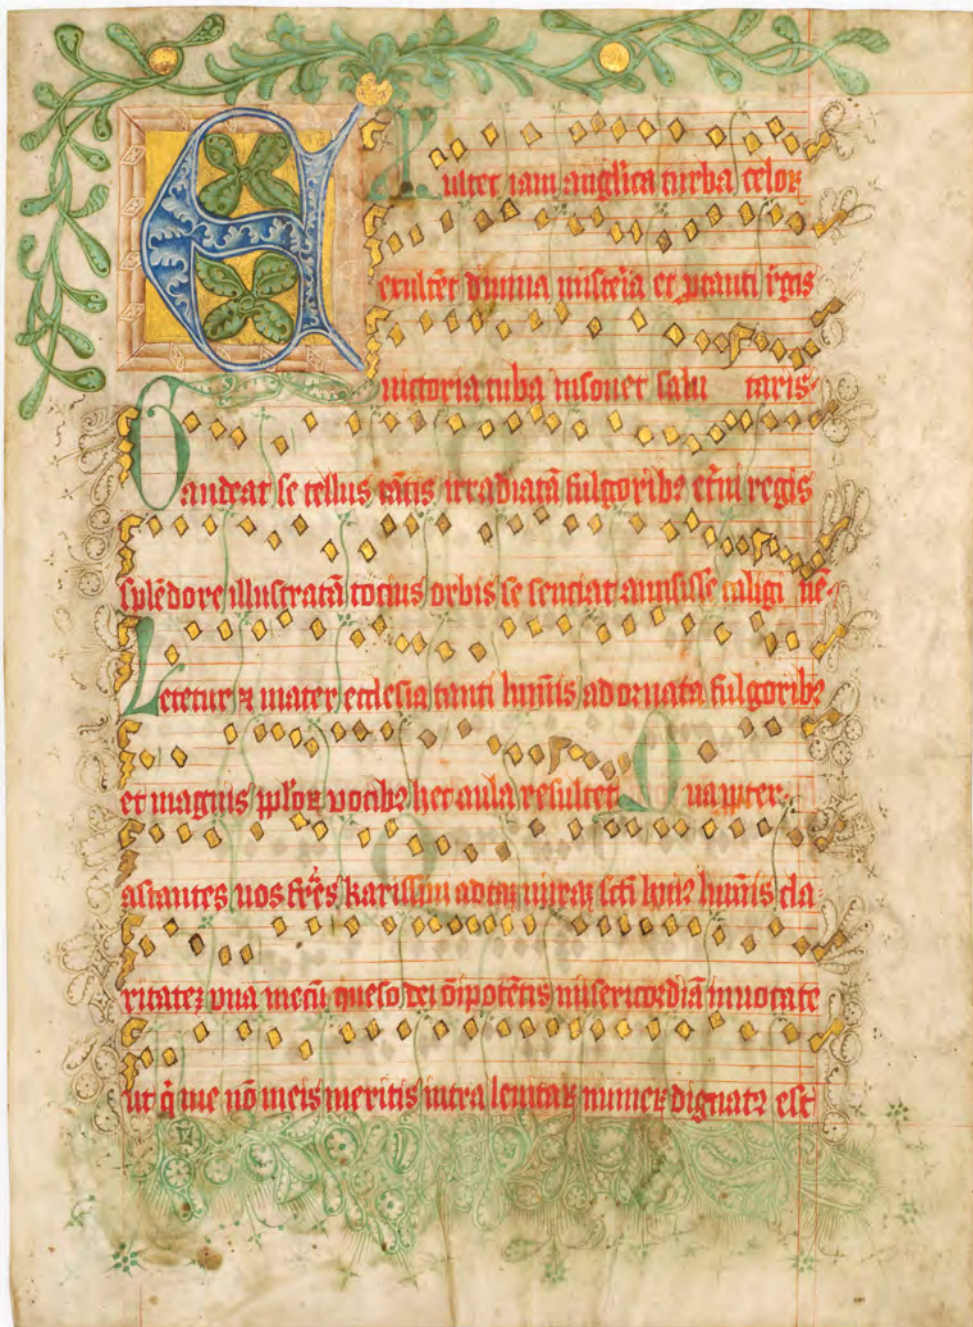 EXultet iam anglica turba celoꝝ
exultẽt diuina misteria et ꝓ tanti regis
uictoria tuba insonet salu taris·
Gaudeat se tellus tãtis irradiatã fulgoribꝰ et̃ni regis
splẽdore illustratã tocius orbis se senciat amisisse caligi nẽ·
Letetur ⁊ mater ecclesia tanti luminis adornata fulgoribꝰ
et magnis pploꝝ uocibꝰ hec aula resultet Quapꝓter·
astantes uos fr̃es karissimi ad tam miram sc̃i huiꝰ luminis cla·
ritatẽ vna mecũ queso dei õipotẽtis misericordiã inuocate
ut q̇ me nõ meis meritis intra leuitaꝝ numeꝝ dignatꝰ est